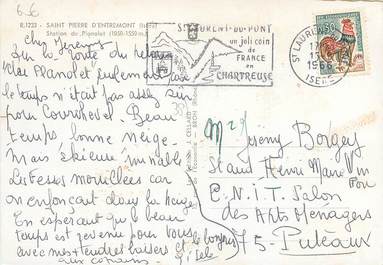 6€
R.1233 - SAINT PIERRE D'ENTREMONT (Isère)
Station du Planolet (1050-1550 m.)
ST LAURENT-DU-PONT
un joli coin
de FRANCE
en
CHARTREUSE
ST LAURENT DU
17
1966
ISERE
Cher Jeremy
Sur la route du retour
Planolet seulement
le temps n'était pas assez sûr
pour Courchevel. Beau
temps bonne neige.
Mais skieuse minable
Les fesses mouillées car
on enfonçait dans la neige
En espérant que le beau
temps est revenu pour vous
avec mes + tendres baisers et le bonjour
aux copains Gisèle
CELLARD
BRON (Rhône)
M 29
Jérémy Borgey
Stand Henri
C.N.I.T. Salon
des Arts Menagers
75 - Puteaux